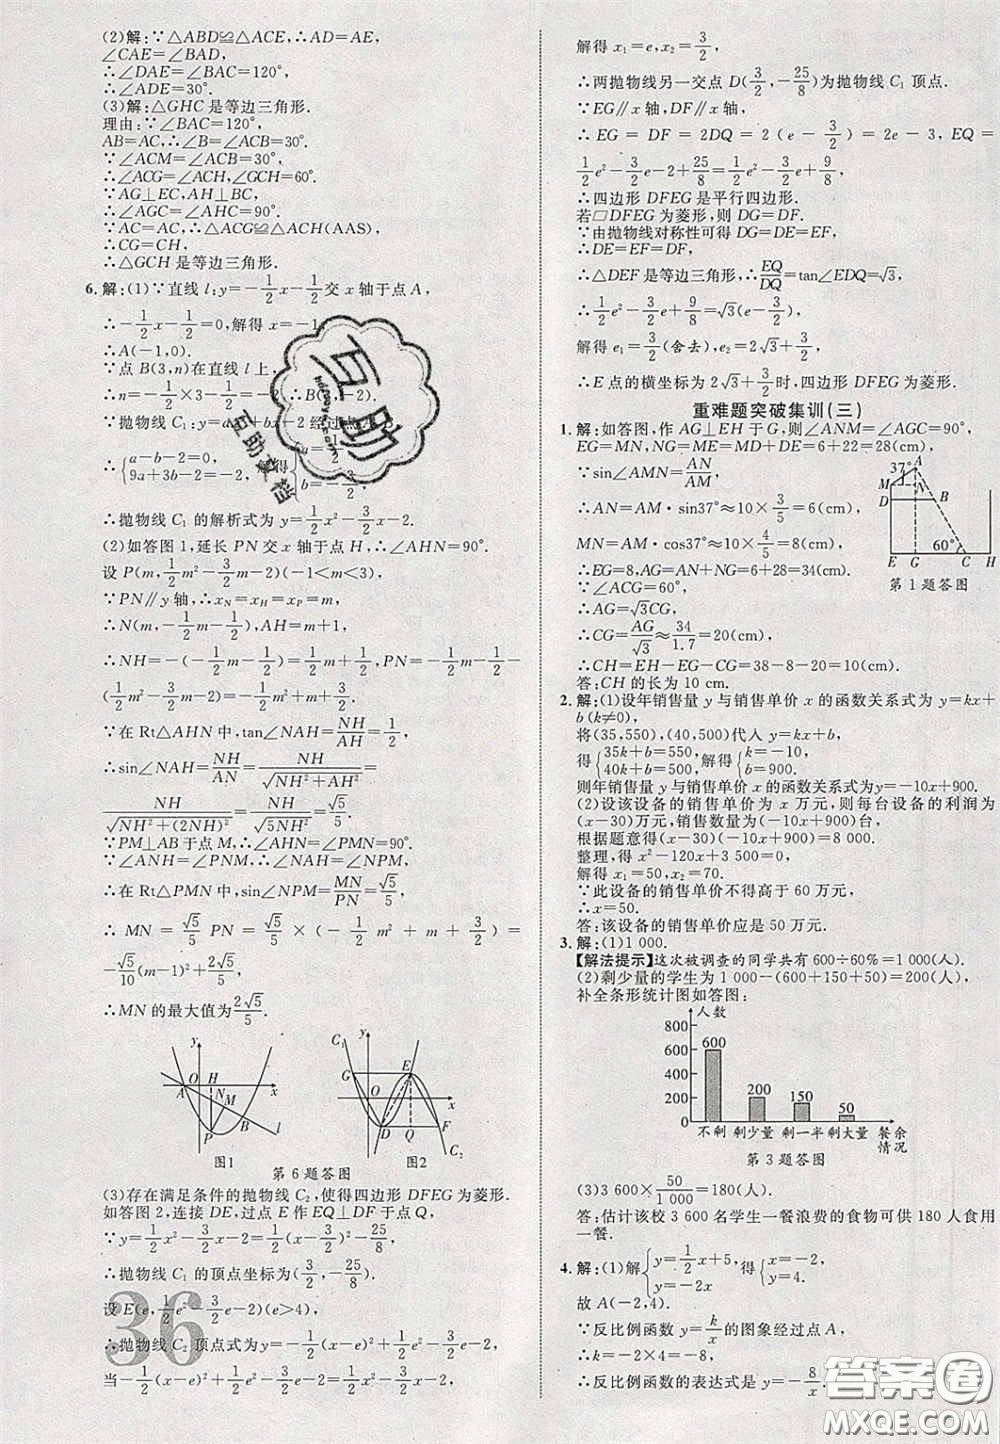 (2)解:∵△ABD≌△ACE,∴AD=AE,
∠CAE=∠BAD.
∴∠DAE=∠BAC=120°,
∴∠ADE=30°.
(3)解:△GHC是等边三角形.
理由:∵∠BAC=120°,
AB=AC,∴∠ACB=30°.
∵∠ACM=∠ACB=30°.
∴∠ACG=∠ACH,∠GCH=60°.
∵AG⊥EC,AH⊥BC,
∴∠AGC=∠AHC=90°.
∵AC=AC,∴△ACG≌△ACH(AAS),
∴CG=CH,
∴△GCH是等边三角形.
6.解:(1)∵直线l:y=-1/2x-1/2交x轴于点A,
∴-1/2x-1/2=0,解得x=-1
∴A(-1,0).
∵点B(3,n)在直线l上,
∴n=-1/2×3-1/2=-2
∵抛物线C₁:y=ax²+bx-2经过点
∴{a-b-2=0, 9a+3b-2=-2, 得 b=-3/2
∴抛物线C₁的解析式为y=1/2x²-3/2x-2.
(2)如答图1,延长PN交x轴于点H,∴∠AHN=90°.
设P(m,1/2m²-3/2m-2)(-1<m<3),
∵PN∥y轴,∴x_N=x_H=x_P=m,
∴N(m,-1/2m-1/2),AH=m+1,
∴NH=-(-1/2m-1/2)=1/2m+1/2,PN=-1/2m-1/2-
(1/2m²-3/2m-2)=-1/2m²+m+3/2.
∵在Rt△AHN中,tan∠NAH=NH/AH=1/2,
∴sin∠NAH=NH/AN=NH/√(NH²+AH²)=
NH/√(NH²+(2NH)²)=NH/√(5NH²)=√5/5
∵PM⊥AB于点M,∴∠AHN=∠PMN=90°.
∵∠ANH=∠PNM,∴∠NAH=∠NPM,
∴在Rt△PMN中,sin∠NPM=MN/PN=√5/5
∴MN=√5/5 PN=√5/5(-1/2m²+m+3/2)=
-√5/10(m-1)²+2√5/5,
∴MN的最大值为2√5/5.
y O H x A N M P B l
图1
C₁ y G E O x D Q F C₂
图2
第6题答图
(3)存在满足条件的抛物线C₂,使得四边形DFEG为菱形.
如答图2,连接DE,过点E作EQ⊥DF于点Q,
∵y=1/2x²-3/2x-2=1/2(x-3/2)²-25/8,
∴抛物线C₁的顶点坐标为(3/2,-25/8).
设E(e,1/2e²-3/2e-2)(e>4),
∴抛物线C₂顶点式为y=-1/2(x-e)²+1/2e²-3/2e-2,
当-1/2(x-e)²+1/2e²-3/2e-2=1/2(x-3/2)²-25/8时,
36
解得x₁=e,x₂=3/2,
∴两抛物线另一交点D(3/2,-25/8)为抛物线C₁顶点.
∵EG∥x轴,DF∥x轴,
∴EG=DF=2DQ=2(e-3/2)=2e-3,EQ=
1/2e²-3/2e-2+25/8=1/2e²-3/2e+9/8,
∴四边形DFEG是平行四边形.
若□DFEG为菱形,则DG=DF.
∵由抛物线对称性可得DG=DE=EF,
∴DE=DF=EF,
∴△DEF是等边三角形,∴EQ/DQ=tan∠EDQ=√3,
∴1/2e²-3/2e+9/8=√3(e-3/2),
解得e₁=3/2(舍去),e₂=2√3+3/2,
∴E点的横坐标为2√3+3/2时,四边形DFEG为菱形.
重难题突破集训(三)
1.解:如答图,作AG⊥EH于G,则∠ANM=∠AGC=90°,
EG=MN,NG=ME=MD+DE=6+22=28(cm)
∵sin∠AMN=AN/AM
∴AN=AM·sin37°≈10×3/5=6(cm),
MN=AM·cos37°≈10×4/5=8(cm)
∴EG=8,AG=AN+NG=6+28=34(cm)
∵∠ACG=60°,
∴AG=√3CG,
∴CG=AG/√3≈34/1.7=20(cm),
∴CH=EH-EG-CG=38-8-20=10(cm)
答:CH的长为10 cm.
37° A M N D B 60° E G C H
第1题答图
2.解:(1)设年销售量y与销售单价x的函数关系式为y=kx+
b(k≠0),
将(35,550),(40,500)代人y=kx+b,
得{35k+b=550, 40k+b=500, 解得{k=-10, b=900.
则年销售量y与销售单价x的函数关系式为y=-10x+900.
(2)设该设备的销售单价为x万元,则每台设备的利润为
(x-30)万元,销售数量为(-10x+900)台,
根据题意得(x-30)(-10x+900)=8 000.
整理,得x²-120x+3 500=0,
解得x₁=50,x₂=70.
∵此设备的销售单价不得高于60万元,
∴x=50.
答:该设备的销售单价应是50万元.
3.解:(1)1 000.
【解法提示】这次被调查的同学共有600÷60%=1 000(人).
(2)剩少量的学生为1 000-(600+150+50)=200(人),
补全条形统计图如答图:
人数
800
600
400
200
0
600 200 150 50
不剩 剩少量 剩一半 剩大量 餐余情况
第3题答图
(3)3 600×50/1 000=180(人).
答:估计该校3 600名学生一餐浪费的食物可供180人食用
一餐.
4.解:(1)解{y=1/2x+5, y=-2x 得{x=-2, y=4.
故A(-2,4).
∵反比例函数y=k/x的图象经过点A,
∴k=-2×4=-8,
∴反比例函数的表达式是y=-8/x.
互助
互助文档
答案圈
MXQE.COM